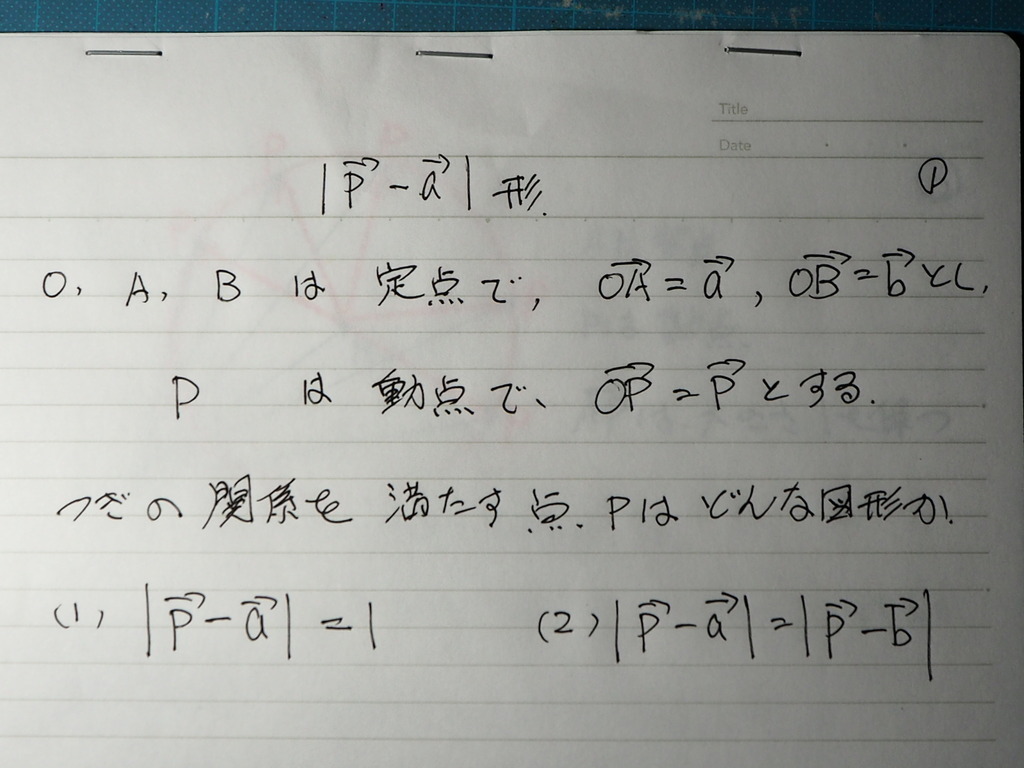 Title
Date
|p⃗ − a⃗| 形. ①
O, A, B は 定点で, OA⃗ = a⃗, OB⃗ = b⃗ とし,
P は 動点で、 OP⃗ = p⃗ とする.
つぎの 関係を 満たす 点. Pは どんな図形か.
(1) |p⃗ − a⃗| = 1 (2) |p⃗ − a⃗| = |p⃗ − b⃗|